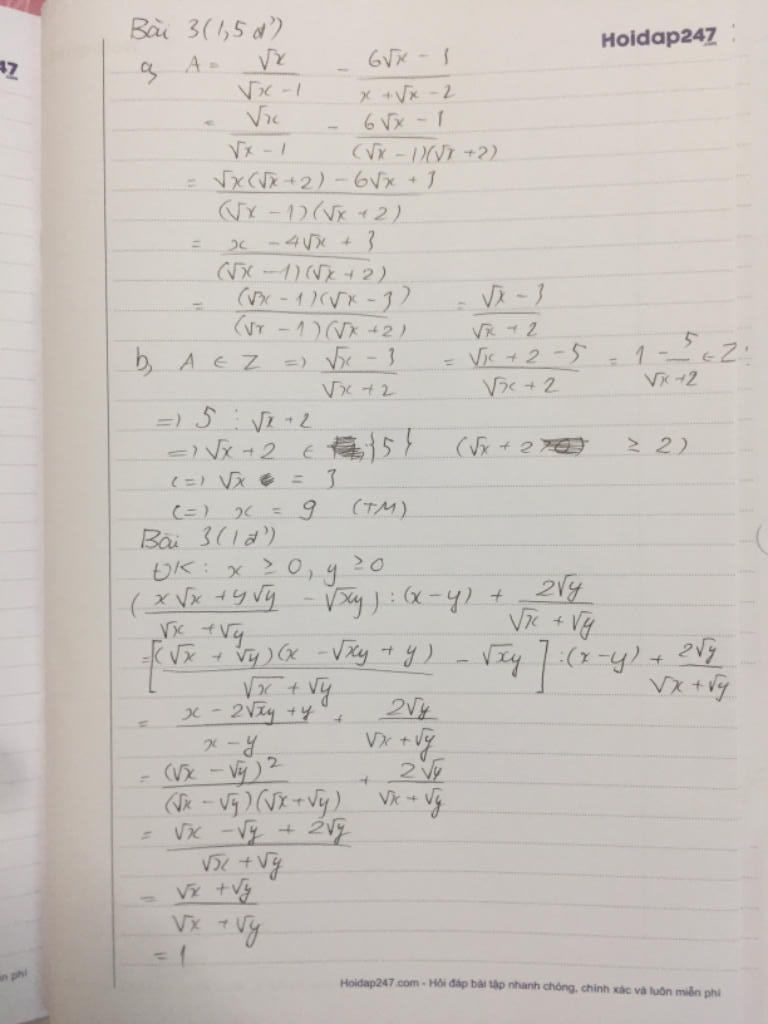 Bài 3 (1,5 đ)
Hoidap247
47
a, A = √x/(√x - 1) - (6√x - 3)/(x + √x - 2)
= √x/(√x - 1) - (6√x - 3)/((√x - 1)(√x + 2))
= (√x(√x + 2) - 6√x + 3)/((√x - 1)(√x + 2))
= (x - 4√x + 3)/((√x - 1)(√x + 2))
= ((√x - 1)(√x - 3))/((√x - 1)(√x + 2)) = (√x - 3)/(√x + 2)
b, A ∈ Z => (√x - 3)/(√x + 2) = (√x + 2 - 5)/(√x + 2) = 1 - 5/(√x + 2) ∈ Z
=> 5 ⋮ √x + 2
=> √x + 2 ∈ {5} (√x + 2 ≥ 2)
(=) √x = 3
(=) x = 9 (TM)
Bài 3 (1 đ)
ĐK: x ≥ 0, y ≥ 0
((x√x + y√y)/(√x + √y) - √xy) : (x - y) + 2√y/(√x + √y)
= [((√x + √y)(x - √xy + y))/(√x + √y) - √xy] : (x - y) + 2√y/(√x + √y)
= (x - 2√xy + y)/(x - y) + 2√y/(√x + √y)
= (√x - √y)²/((√x - √y)(√x + √y)) + 2√y/(√x + √y)
= (√x - √y + 2√y)/(√x + √y)
= (√x + √y)/(√x + √y)
= 1
n phí
Hoidap247.com - Hỏi đáp bài tập nhanh chóng, chính xác và luôn miễn phí